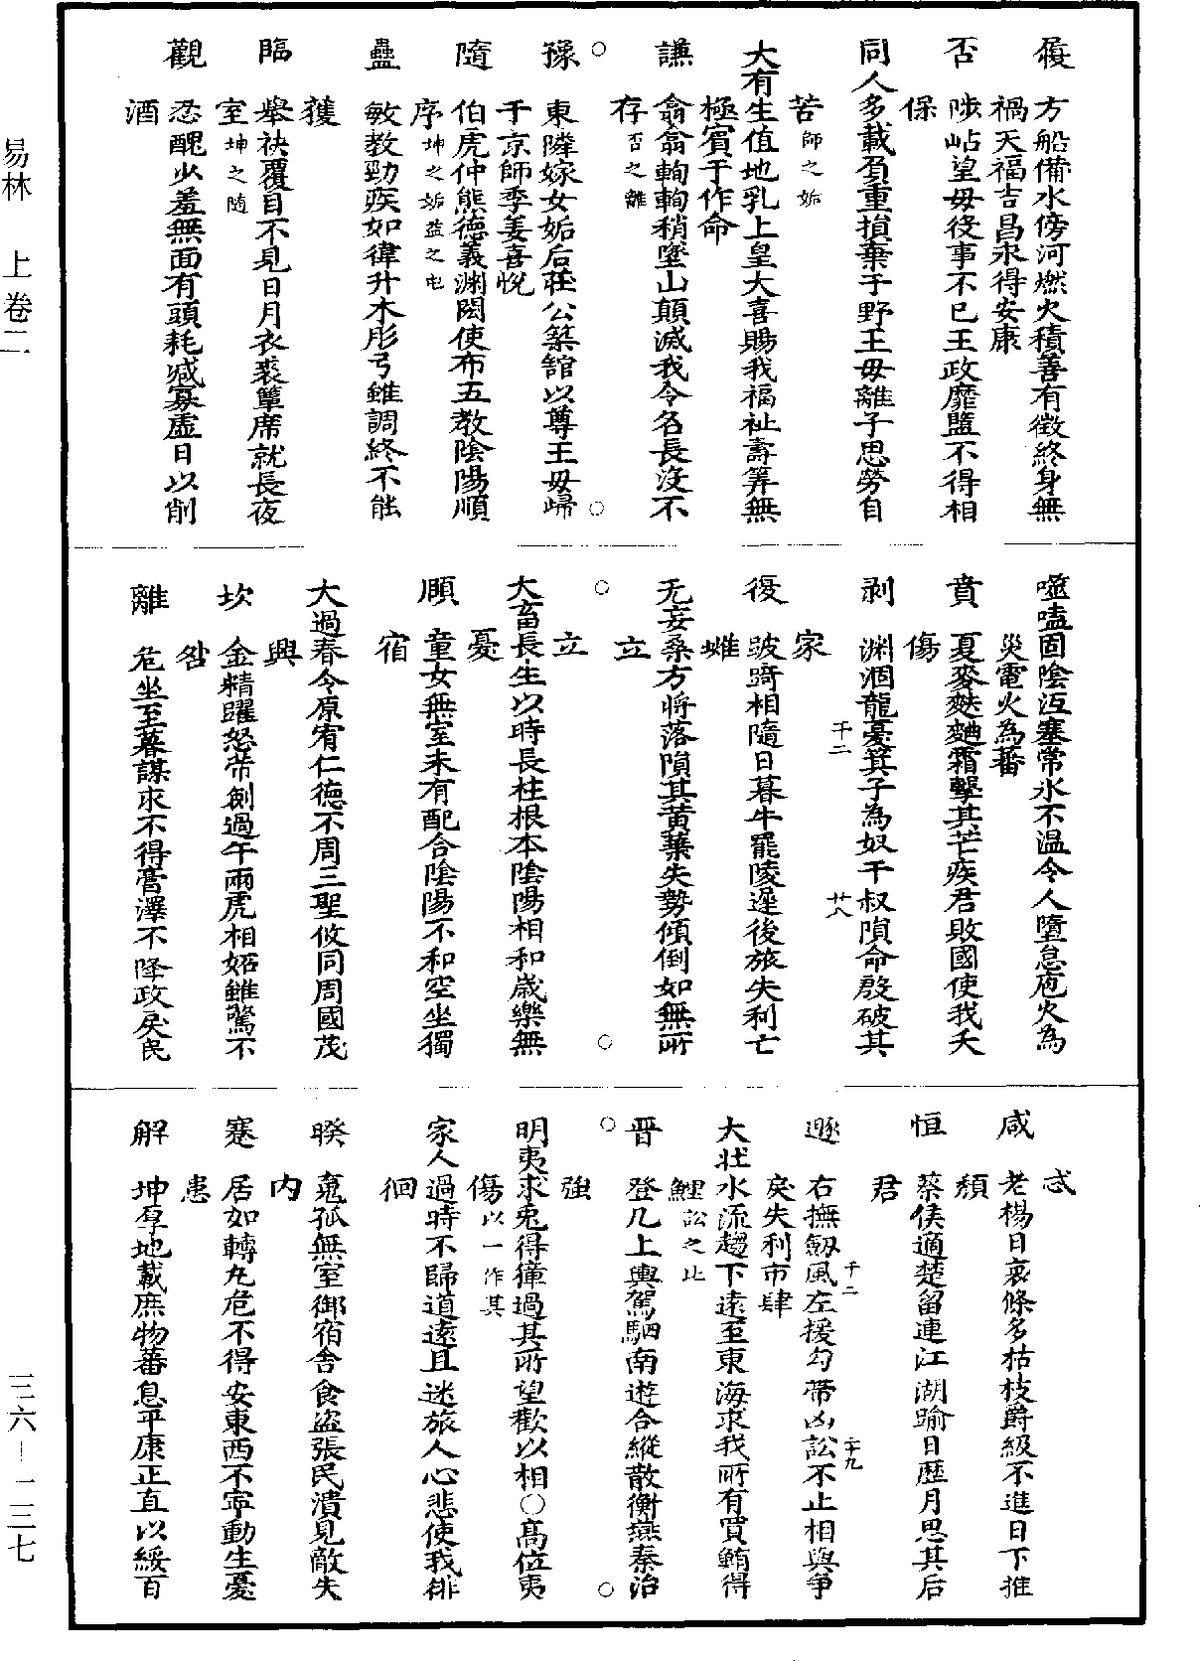 易林　上卷二
三六－一三七
履　方船備水傍河燃火積善有徵終身無
禍天福吉昌永得安康
否　陟岵望母役事不已王政靡盬不得相
保
同人多載負重損棄于野王母離子思勞自
苦師之姤
大有生值地乳上皇大喜賜我福祉壽筭無
極賓于作命
謙　翕翕輷輷稍墜山顛滅我令名長沒不
存否之離
○　○
豫　東隣嫁女姤后莊公築館以尊王母歸
于京師季姜喜悅
隨　伯虎仲熊德義淵閎使布五教陰陽順
序坤之姤益之屯
蠱　敏教勁疾如猬升木彤弓雖調終不能
獲
臨　舉袂覆目不見日月衣裘簟席就長夜
室坤之隨
觀　忍醜少羞無面有頭耗減寡虛日以削
酒
噬嗑固陰冱塞常氷不温令人墮怠雹火為
災電火為蕃
賁　夏麥麩𪍿霜擊其芒疾君敗國使我夭
傷
剥　淵涸龍憂箕子為奴干叔隕命殷破其
家　千二　廿八
復　跛踦相隨日暮牛罷陵遲後旅失利亡
雌
无妄桑方將落隕其黄葉失勢傾倒如無所
立
○　○
大畜長生以時長柱根本陰陽相和歳樂無
憂
頤　童女無室未有配合陰陽不和空坐獨
宿
大過春令原宥仁德不周三聖攸同周國茂
興
坎　金精躍怒帶劍過午兩虎相妬雖驚不
咎
離　危坐至暮謀求不得膏澤不降政戾民
忒
咸　老楊日衰條多枯枝爵級不進日下摧
頽
恒　蔡侯適楚留連江湖踰日歷月思其后
君
遯　右撫劔風左援勾帶凶訟不止相與爭　千二　二十九
戾失利市肆
大壯水流趨下遠至東海求我所有買鮪得
鯉訟之比
晋　登几上輿駕駟南遊合縱散衡燕秦治
强
○　○
明夷求兎得獐過其所望歡以相○高位夷
傷以一作其
家人過時不歸道遠且迷旅人心悲使我徘
徊
睽　鳧孤無室御宿舍食盜張民潰見敵失
内
蹇　居如轉丸危不得安東西不寧動生憂
患
解　坤厚地載庶物蕃息平康正直以綏百